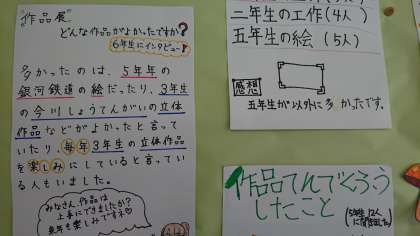 作品展
どんな作品がよかったですか?
6年生にインタビュー!
多かったのは、5年年の
銀河鉄道の絵だったり、3年生
の今川しょうてんがいの立体
作品などがよかったと言って
いたり、毎年3年生の立体作品
を楽しみにしていると言ってい
る人もいました。
みなさん、作品は
上手にできましたか?
来年も楽しみです
三年生の工作(4人)
五年生の絵(5人)
感想
五年生が以外に多かったです。
作品てんでくろうし
たこと